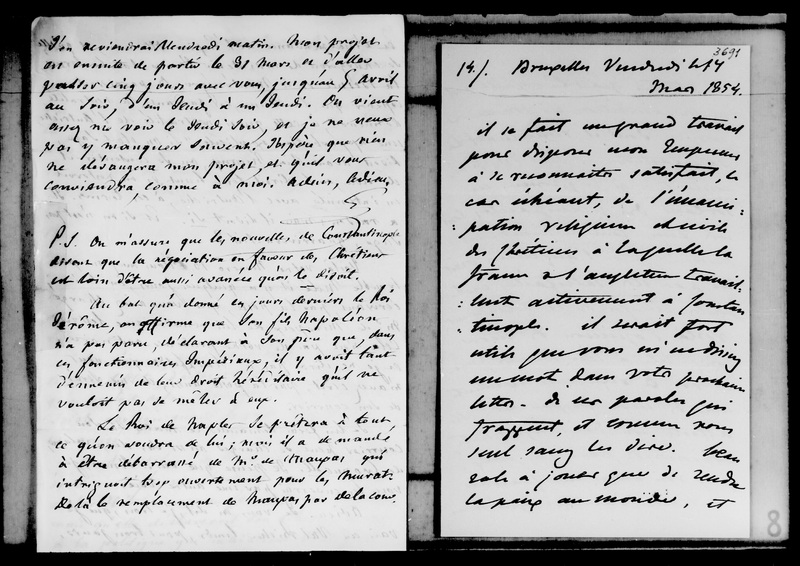 J'en reviendrai Vendredi matin. Mon projet
est ensuite de partir le 31 mars et d'aller
passer cinq jours avec vous, jusqu'au 5 avril
au soir, d'un Jeudi à un Jeudi. On vient
assez me voir le Jeudi soir, et je ne veux
pas y manquer souvent. J'espère que rien
ne dérangera mon projet, et qu'il vous
conviendra, comme à moi. Adieu, Adieu.
P.S. On m'assure que les nouvelles de Constantinople
disent que la négociation en faveur des Chrétiens
est loin d'être aussi avancée qu'on le disait.
Au bal qu'a donné ces jours derniers le Roi
Jérôme, on affirme que son fils Napoléon
n'a pas paru, déclarant à son père que, dans
ces fonctionnaires Impériaux, il y avoit tant
d'ennemis de leur droit héréditaire qu'il ne
vouloit pas se mêler à eux.
Le Roi de Naples se prêtera à tout
ce qu'on voudra de lui; mais il a demandé
à être débarrassé de Mr. de Maupas qui
intriguoit trop ouvertement pour les Murat.
De là le remplacement de Maupas par delacour.
3691
14/. Bruxelles Vendredi le 17
Mars 1854.
il se fait un grand travail
pour disposer mon Empereur
à se reconnaitre satisfait, le
cas échéant, de l'émanci-
pation religieuse et civile
des Chrétiens à laquelle la
france & l'angleterre travail-
lent activement à Constan-
tinople. il serait fort
utile que vous m'en disiez
un mot dans votre prochaine
lettre. de ces paroles qui
frappent, et comme vous
seul savez les dire. beau
role à jouer que de rendre
la paix au monde, et
8